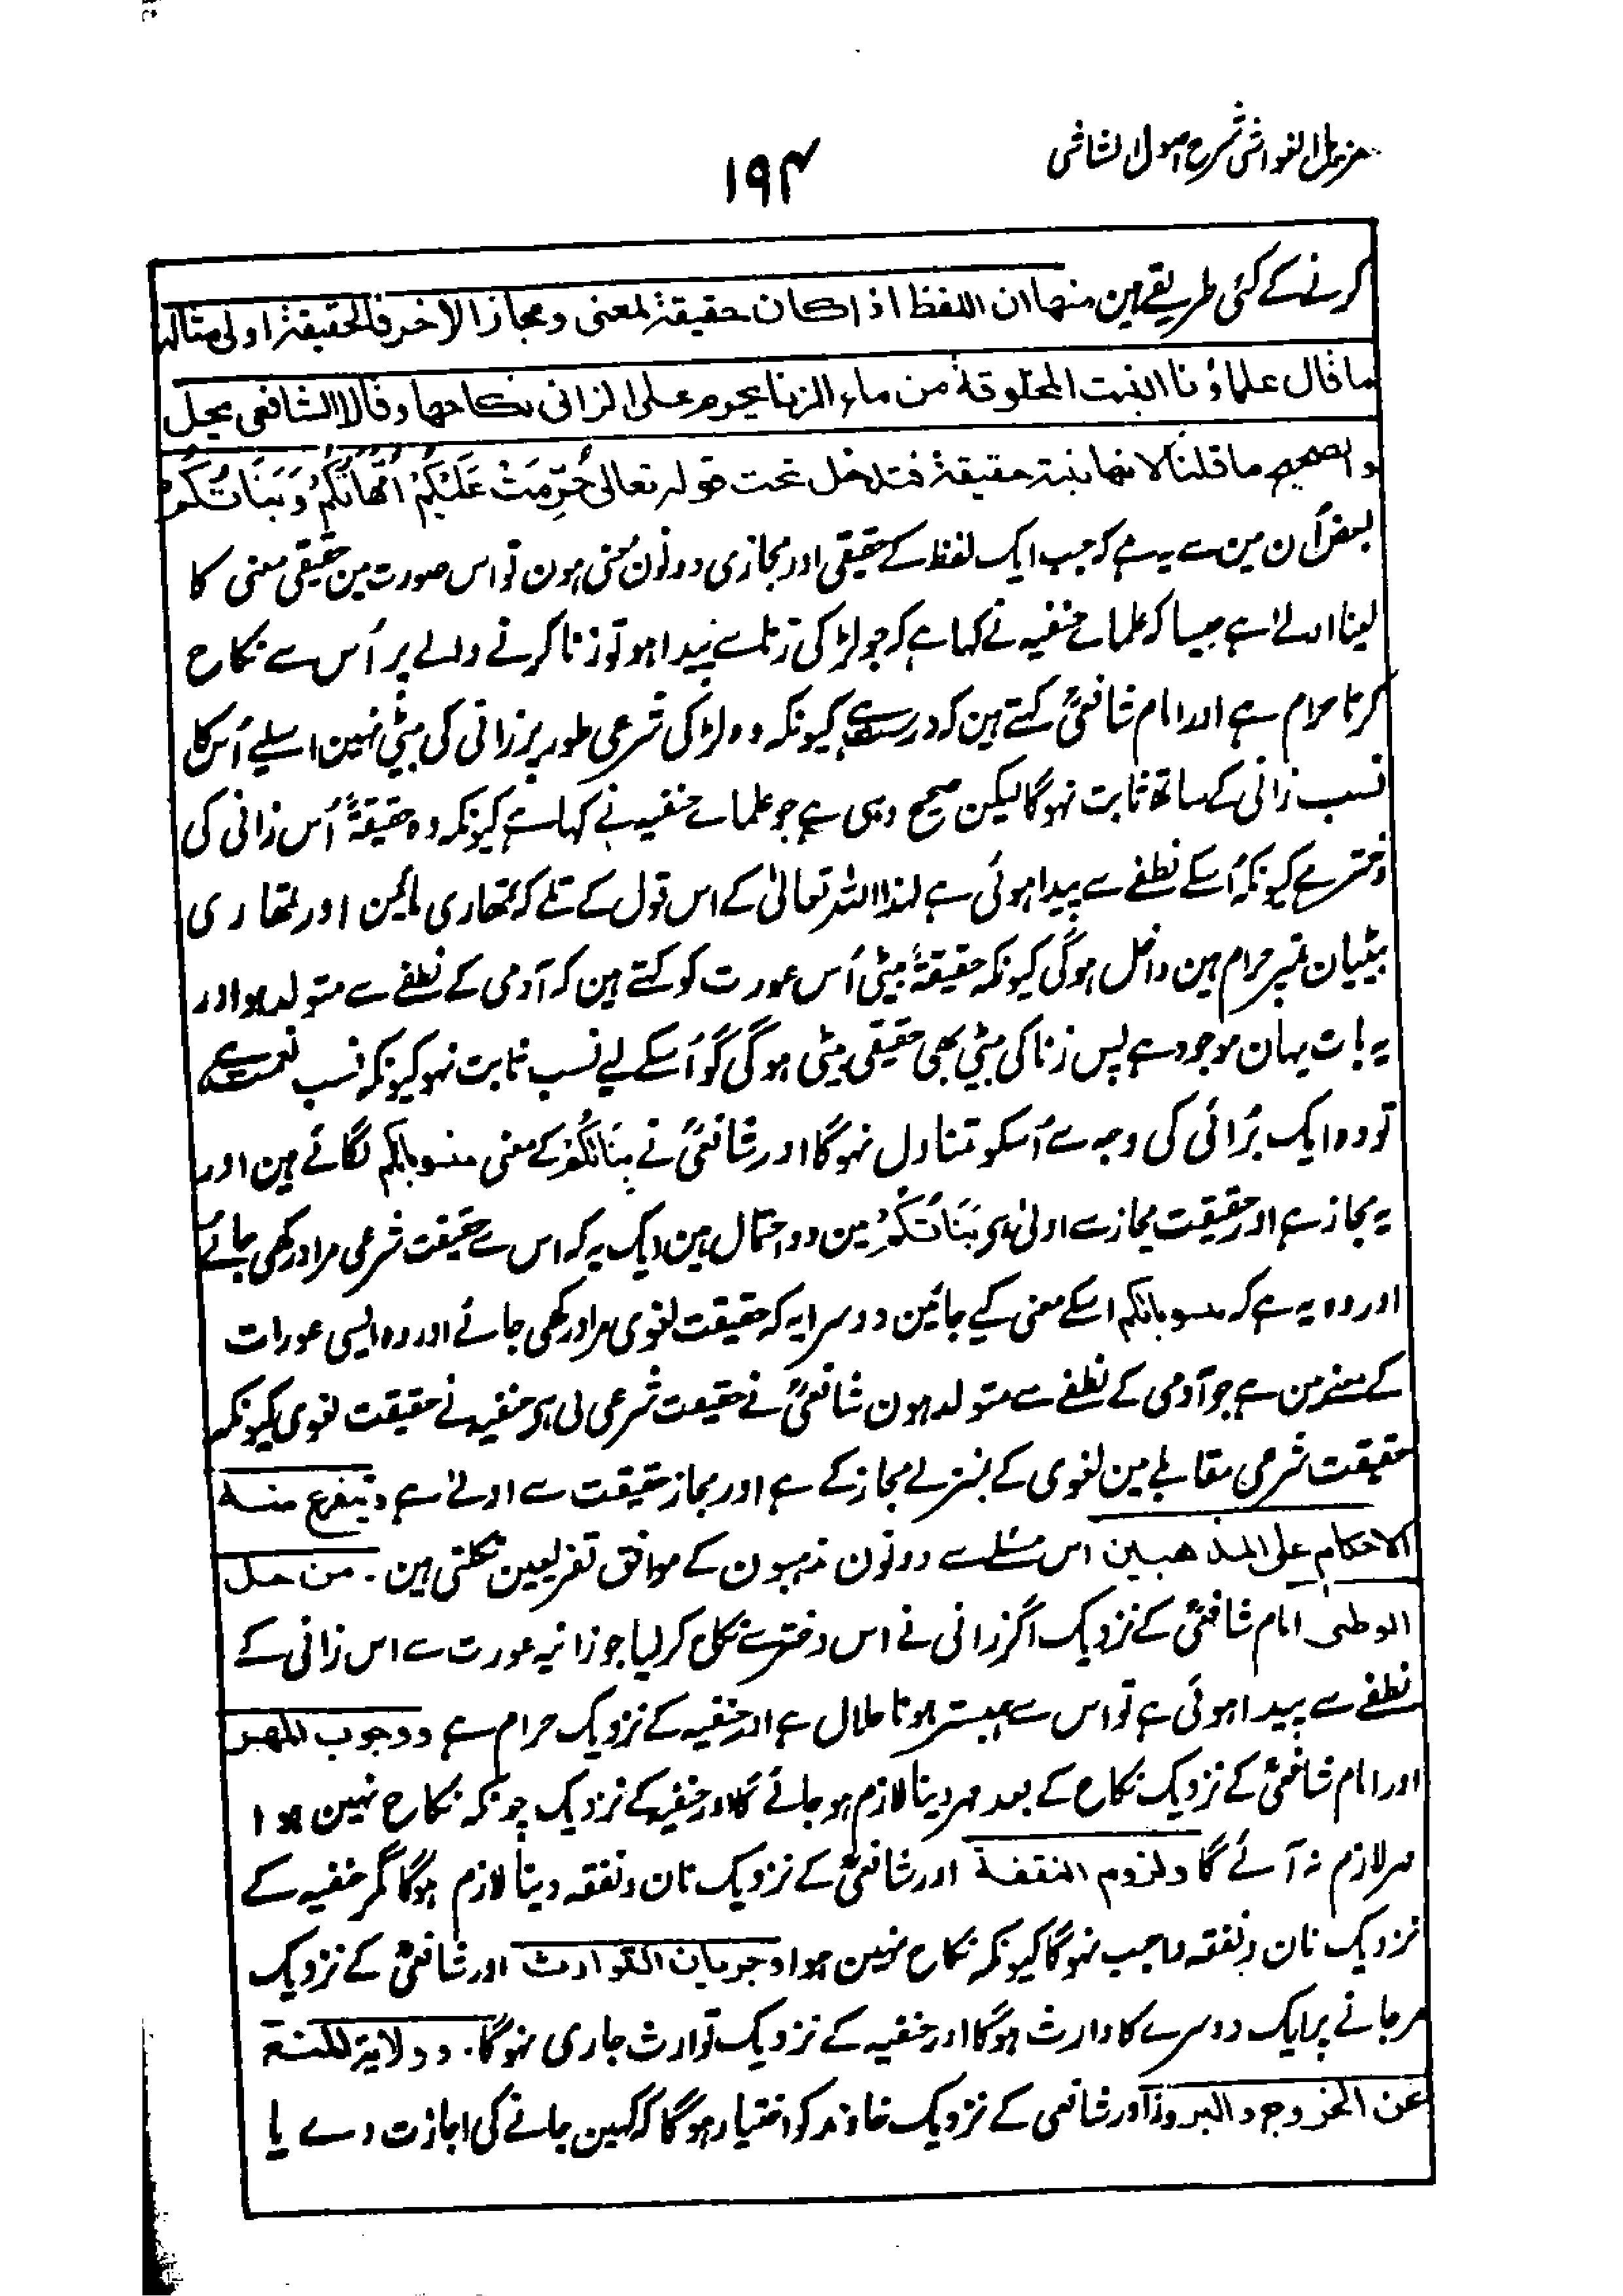 مزیل الغواشی شرح اصول الشاشی
۱۹۴
کرنے کے کئی طریقے ہین منها ان اللفظ اذا کان حقیقة لمعنی ومجازا لاٰخر فالحقیقة اولی مثاله
ما قال علماؤنا البنت المخلوقة من ماء الزنا یحرم علی الزانی نکاحها وقال الشافعی یحل
والصحیح ما قلنا لانها بنته حقیقة فتدخل تحت قوله تعالی حُرِّمَتْ عَلَیْکُمْ اُمَّهَاتُکُمْ وَبَنَاتُکُمْ
بعض اُن مین سے یہ ہے کہ جب ایک لفظ کے حقیقی اور مجازی دونون معنی ہون تو اس صورت مین حقیقی معنی کا
لینا اولےٰ ہے جیسا کہ علماے حنفیہ نے کہا ہے کہ جو لڑکی زنا سے پیدا ہو تو زنا کرنے والے پر اُس سے نکاح
کرنا حرام ہے اور امام شافعیؒ کہتے ہین کہ درست ہے کیونکہ وہ لڑکی شرعی طور پر زانی کی بیٹی نہین اسلیے اُس کا
نسب زانی کے ساتھ ثابت نہوگا لیکن صحیح وہی ہے جو علماے حنفیہ نے کہا ہے کیونکہ وہ حقیقةً اُس زانی کی
دختر ہے کیونکہ اُسکے نطفے سے پیدا ہوئی ہے لہذا اللہ تعالیٰ کے اس قول کے تلے کہ تمھاری مائین اور تمھاری
بیٹیان تمپر حرام ہین داخل ہوگی کیونکہ حقیقةً بیٹی اُس عورت کو کہتے ہین کہ آدمی کے نطفے سے متولد ہو اور
یہ بات یہان موجود ہے پس زنا کی بیٹی بھی حقیقی بیٹی ہوگی گو اُسکے لیے نسب ثابت نہو کیونکہ نسب نعمت ہے
تو وہ ایک بُرائی کی وجہ سے اُسکو متناول نہوگا اور شافعیؒ نے بَنَاتُکُمْ کے معنی منسوباتکم لگائے ہین اور
یہ مجاز ہے اور حقیقت مجاز سے اولیٰ ہی بَنَاتُکُمْ مین دو احتمال ہین ایک یہ کہ اس سے حقیقت شرعی مراد رکھی جائے
اور وہ یہ ہے کہ منسوباتکم اسکے معنی کیے جائین دوسرا یہ کہ حقیقت لغوی مراد رکھی جائے اور وہ ایسی عورات
کے معنے مین ہے جو آدمی کے نطفے سے متولد ہون شافعیؒ نے حقیقت شرعی لی ہی حنفیہ نے حقیقت لغوی کیونکہ
حقیقت شرعی مقابلے مین لغوی کے بمنزلے مجاز کے ہے اور مجاز حقیقت سے اولےٰ ہے ویتفرع منه
الاحکام علی المذهبین اس مسئلے سے دونون مذہبون کے موافق تفریعین نکلتی ہین۔ من حل
الوطی امام شافعیؒ کے نزدیک اگر زانی نے اس دختر سے نکاح کر لیا جو زانیہ عورت سے اس زانی کے
نطفے سے پیدا ہوئی ہے تو اس سے ہمبستر ہونا حلال ہے اور حنفیہ کے نزدیک حرام ہے ووجوب المهر
اور امام شافعیؒ کے نزدیک نکاح کے بعد مہر دینا لازم ہو جائے گا اور حنفیہ کے نزدیک چونکہ نکاح نہین ہوا
مہر لازم نہ آئے گا ولزوم النفقة اور شافعیؒ کے نزدیک نان ونفقہ دینا لازم ہوگا مگر حنفیہ کے
نزدیک نان ونفقہ واجب نہوگا کیونکہ نکاح نہین ہوا وجریان التوارث اور شافعیؒ کے نزدیک
مر جانے پر ایک دوسرے کا وارث ہوگا اور حنفیہ کے نزدیک توارث جاری نہوگا۔ وولایة المنع
عن الخروج والبروز اور شافعی کے نزدیک خاوند کو اختیار ہوگا کہ کہین جانے کی اجازت دے یا